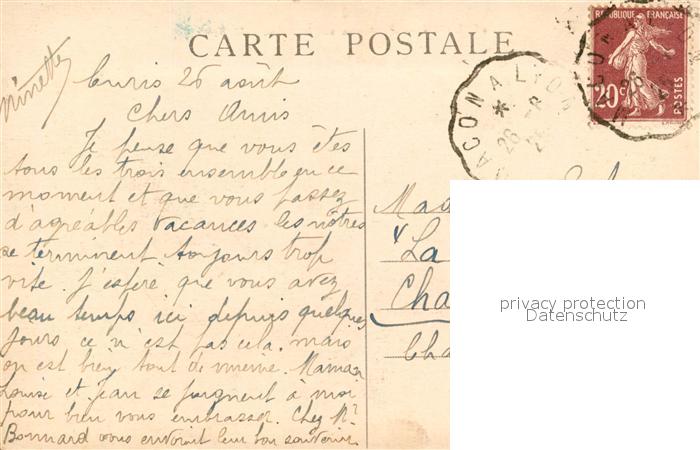 CARTE POSTALE
Ninette
Curis 26 août
Chers Amis
Je pense que vous êtes
tous les trois ensemble en ce
moment et que vous passez
d'agréables vacances les nôtres
se terminent toujours trop
vite. J'espère que vous avez
beau temps ici depuis quelques
jours ce n'est pas cela. mais
on est bien tout de même. Maman
Louise et Jean se joignent à moi
pour bien vous embrasser. Chez Mr
Bonnard vous envoient leur bon souvenir
REPUBLIQUE FRANÇAISE
20c
POSTES
MACON A LYON
26 - 8
"La
Cha
Cha
privacy protection
Datenschutz